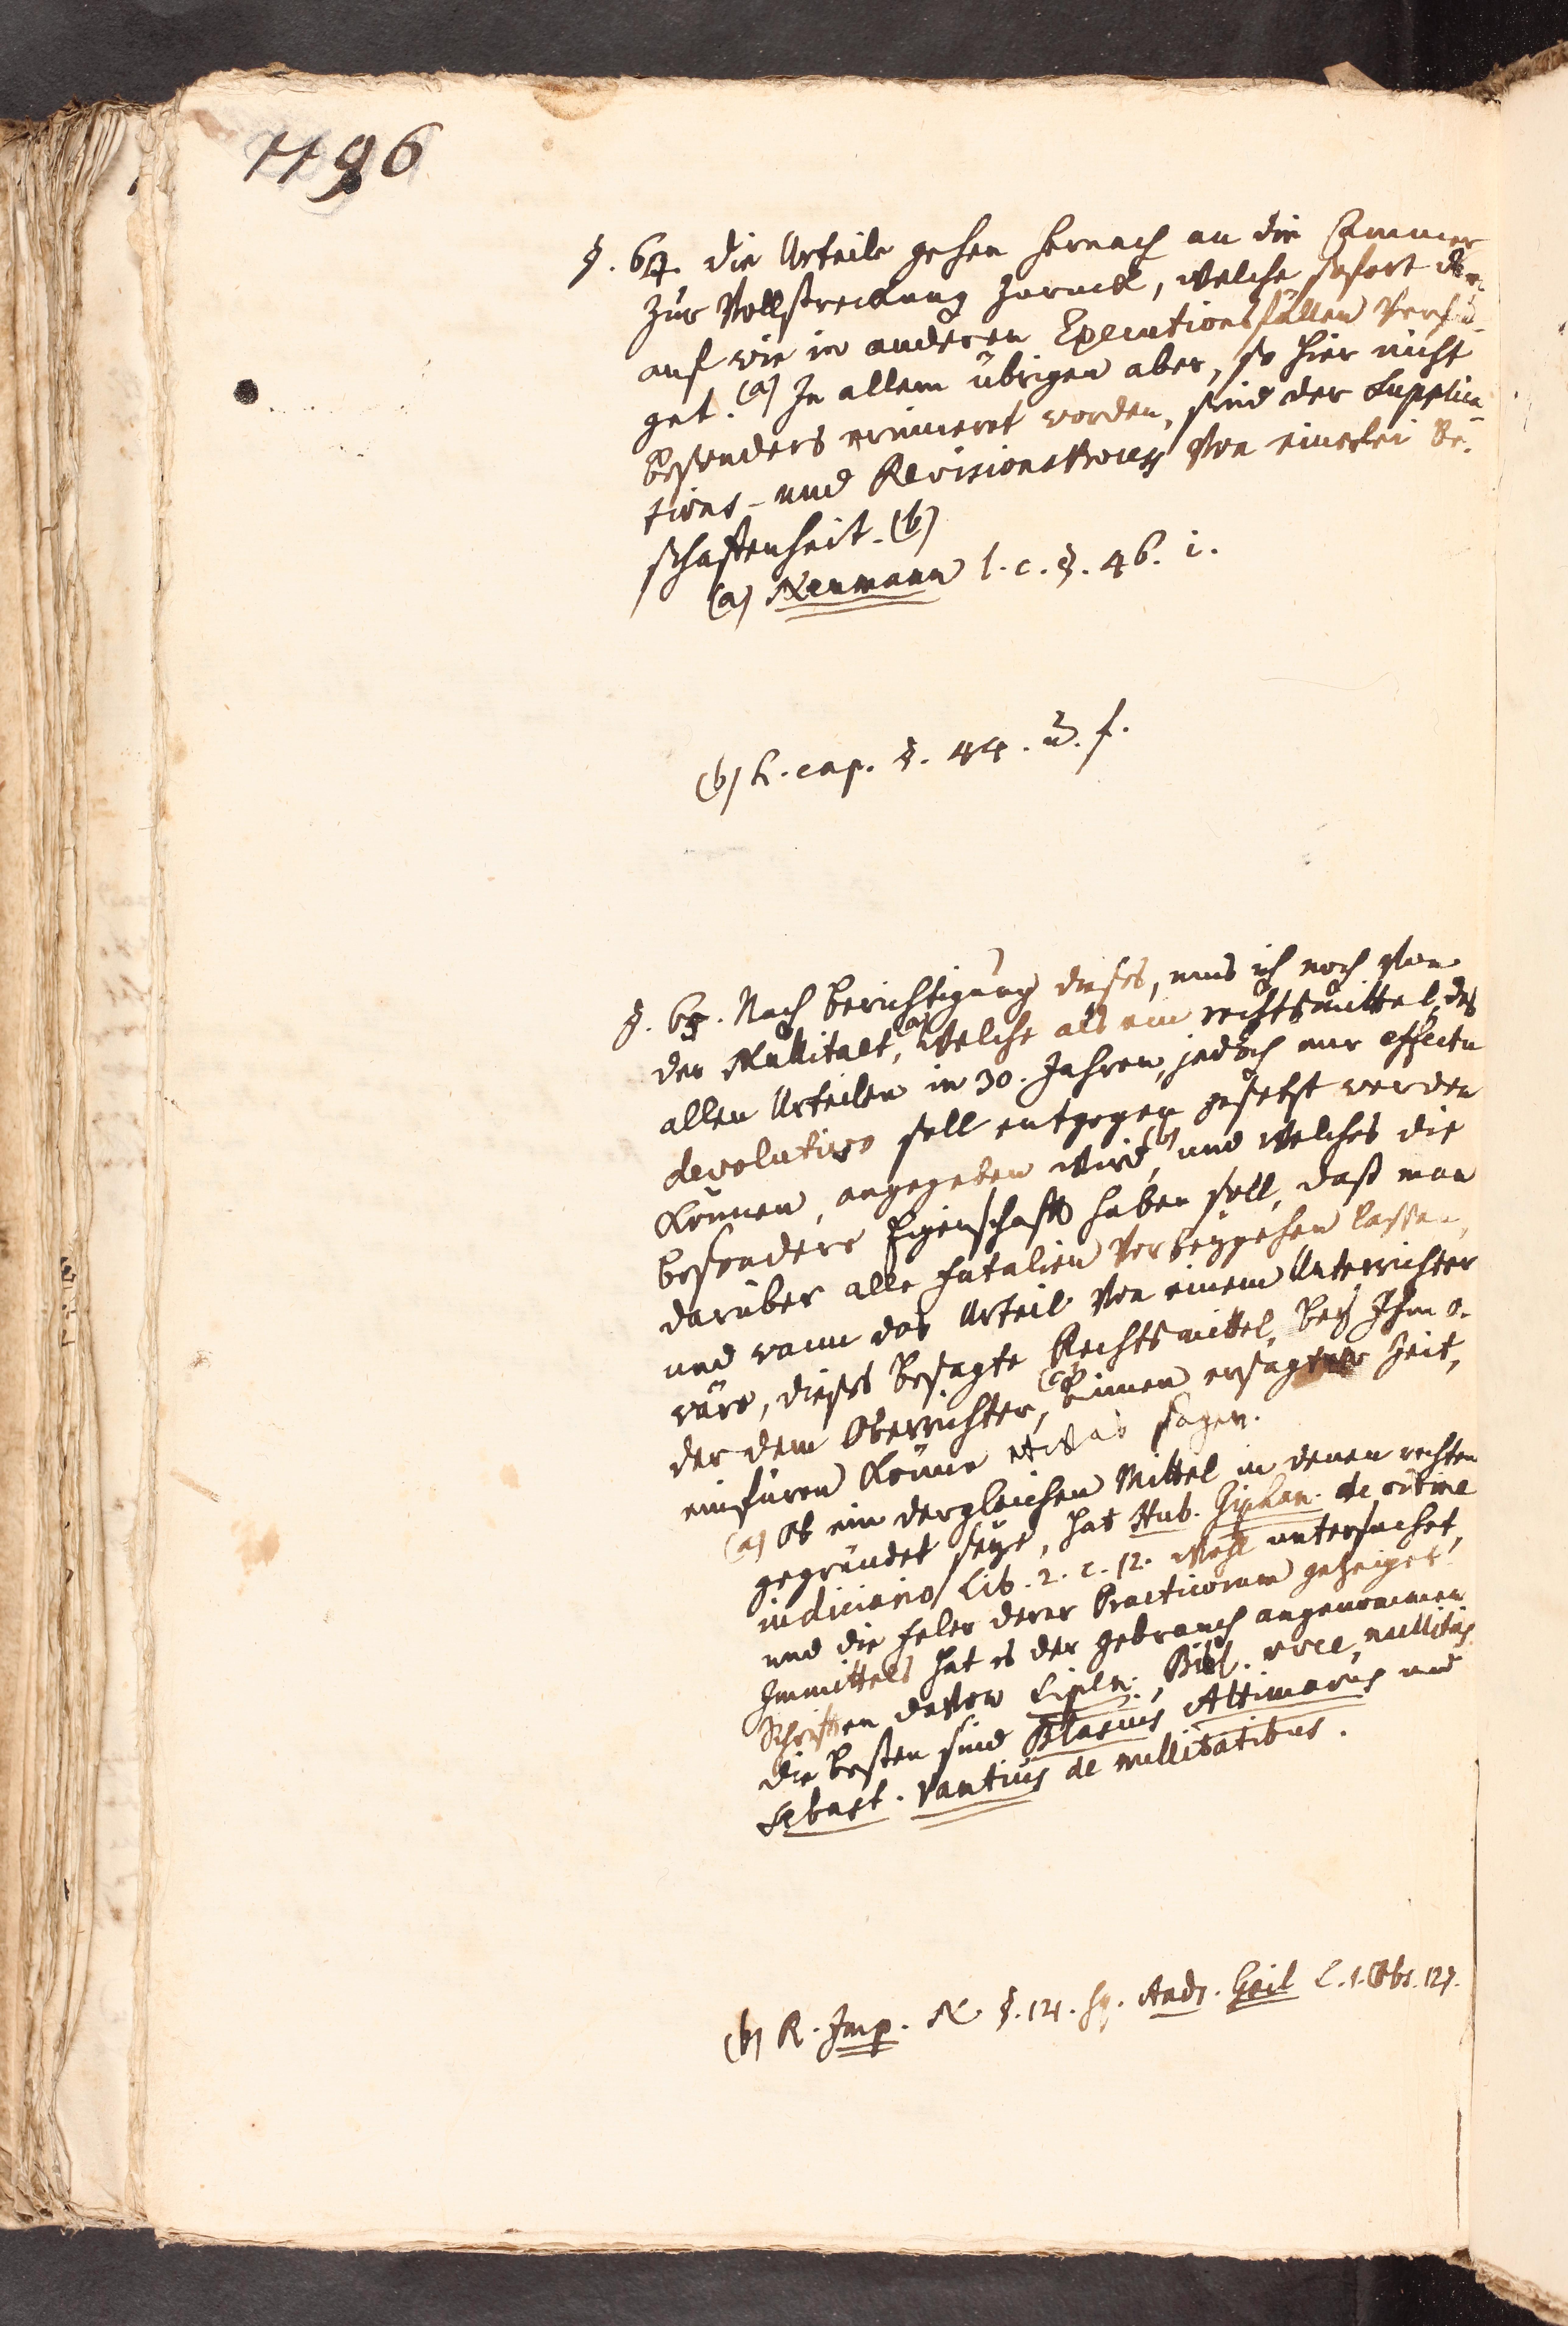 1196
§. 67. Die Urteile gehen hernach an die Cammer
zur Vollstreckung zuruck, welche sofort dar-
auf wie in anderen Executionsfällen verfü-
get. (a) In allem übrigen aber, so hier nicht
besonders erinneret worden, sind der Supplica-
tions- und Revisionsprocess von einerlei Be-
schaffenheit. (b)
(a) Neumann l. c. §. 46. i.
(b) h. cap. §. 44. u. f.
§. 68. Nach Berichtigung dieses, mus ich noch von
der Nullitaet, (a) welche als ein rechtsmittel, das
allen Urteilen in 30. Jahren, jedoch nur effectu
devolutivo soll entgegen gesetzt werden
können, angegeben wird, (b) und welches die
besondere Eigenschaft haben soll, daß man
darüber alle fatalien vorbeygehen lassen,
und wann das Urteil von einem Unterrichter
wäre, dieses besagte Rechtsmittel, bey Ihm o-
der dem Oberrichter, (c) binnen ersagter Zeit,
einfüren könne etwas sagen.
(a) Ob ein dergleichen Mittel in denen rechten
gegründet seye, hat Hub. Giphan. de ordine
iudiciario Lib. 2. c. 12. wohl untersuchet,
und die feler derer Practicorum gezeiget.
Immittels hat es der gebrauch angenommen
Schriften davon Lipen. Bibl. voce nullitas.
die besten sind Blasius Altimarus und
Sebast. Vantius de nullitatibus.
(b) R. Imp. N. §. 121. sq. Andr. Gail L. 1. Obs. 127.